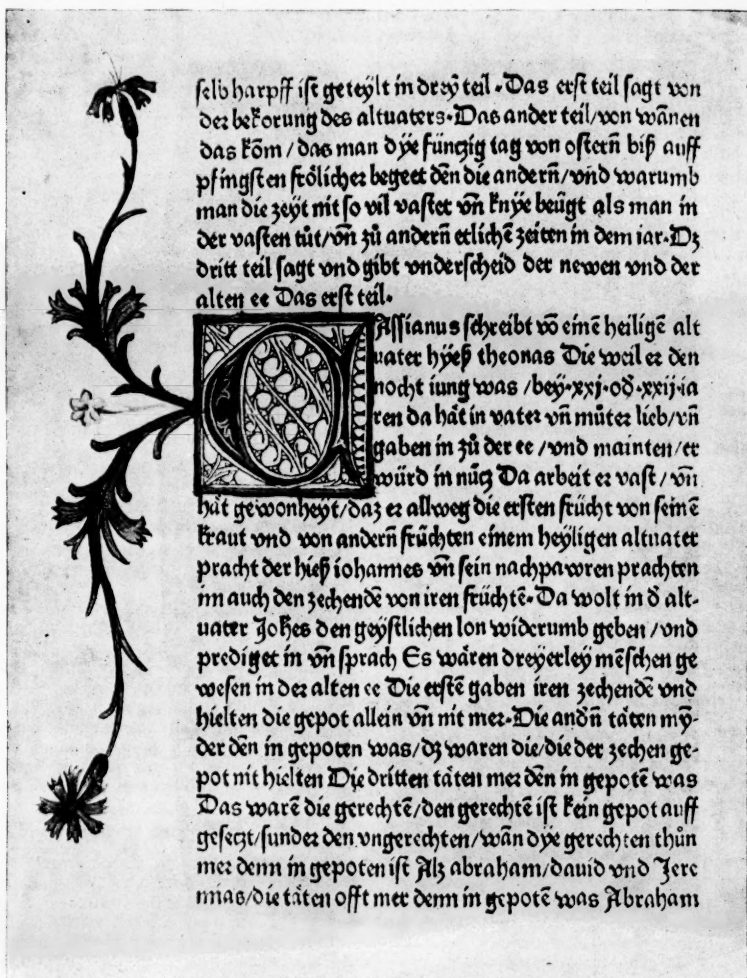 selb harpff ist geteylt in dreÿ teil · Das erst teil sagt von
der bekorung des altuaters · Das ander teil / von wānen
das kōm / das man dÿe fünczig tag von osterñ biß auff
pfingsten frölicher begeet dēn die anderñ / vnd warumb
man die zeÿt nit so vil vastet vñ knÿe beügt als man in
der vasten tůt / vñ zů anderñ etlichē zeiten in dem iar · Dz
dritt teil sagt vnd gibt vnderscheid der newen vnd der
alten ee Das erst teil ·
CAssianus schreibt vō einē heiligē alt
uater hÿeß theonas Die weil er den
nocht iung was / beÿ · xxj · od̄ · xxij · ia
ren da hät in vater vñ můter lieb / vñ
gaben in zů der ee / vnd mainten / er
würd in nücz Da arbeit er vast / vñ
hät gewonheyt / daz er allweg die ersten frücht von seinē
kraut vnd von anderñ früchten einem heÿligen altuater
pracht der hieß iohannes vñ sein nachpawren prachten
im auch den zechendē von iren früchtē · Da wolt in d̄ alt-
uater Johēs den geÿstlichen lon widerumb geben / vnd
prediget in vñ sprach Es wären dreyerley mēschen ge
wesen in der alten ee Die erstē gaben iren zechendē vnd
hielten die gepot allein vñ nit mer · Die andñ täten mÿ-
der dēn in gepoten was / dz waren die / die der zechen ge-
pot nit hielten Die dritten täten mer dēn in gepotē was
Das warē die gerechtē / den gerechtē ist kein gepot auff
geseczt / sunder den vngerechten / wān dÿe gerechten thůn
mer denn in gepoten ist Alz abraham / dauid vnd Jere
mias / die täten offt mer denn in gepotē was Abraham